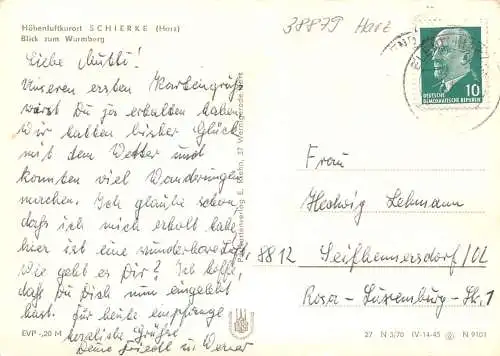 Höhenluftkurort SCHIERKE (Harz)
Blick zum Wurmberg
38879 Harz
10
DEUTSCHE
DEMOKRATISCHE REPUBLIK
Liebe Mutti!
Unseren ersten Kartengruß
wirst Du ja erhalten haben.
Wir hatten bisher Glück
mit dem Wetter und
konnten viel Wanderungen
machen. Ich glaube schon,
daß ich mich erholt habe,
hier ist eine wunderbare Luft.
Wie geht es Dir? Ich hoffe,
daß Du Dich nun eingelebt
hast. Für heute empfange
herzliche Grüße
Deine Friedel u. Werner
37 Wernigerode
Frau
Hedwig Lehmann
8812 Seifhennersdorf/OL
Rosa-Luxemburg-Str. 1
EVP -,20 M
27 N 3/70 IV-14-45 N 9101